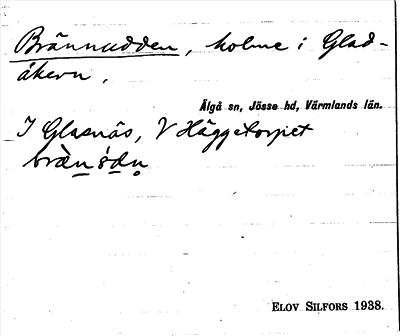 Brännudden, holme i Glad-
åkern.
Älgå sn, Jösse hd, Värmlands län.
I Glasnäs, V Häggetorpet
ELOV SILFORS 1938.